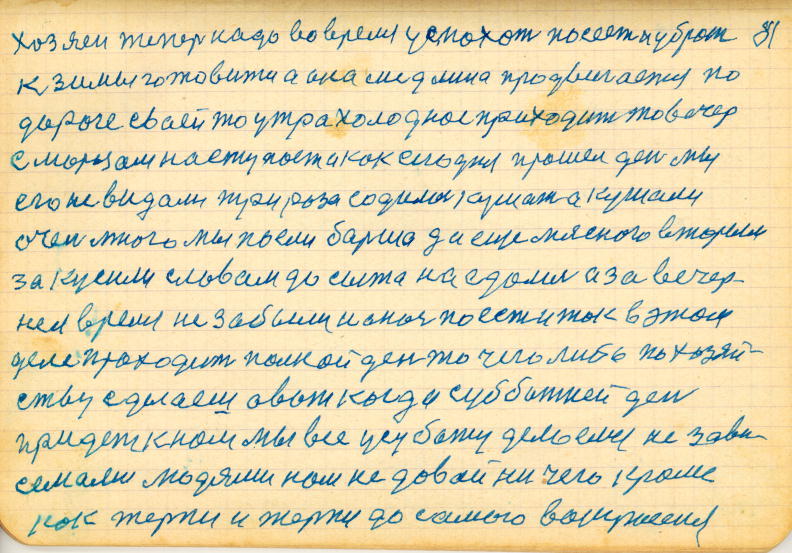 хозяеи тепер надо вовремя успохот посеет и уброт 81
к зимы готовитиа она медлина продвигается по
дороге своей то утра холодное приходит то вечер
с морозам наступоет икок сегодня прошел ден мы
его не видали три роза содили кушат а кушали
очен много мы поели барша да еще мясного вторым
закусили словам до сыта наедомся а за вечер-
нея время не забыли и оноя поести ток в этом
деле проходит полной ден то чего либо по хозяй-
ству сделаеш а вот когда субботней ден
придет к ном мы все усуботу делоемся не зави-
семами людями ном не довой ни чего кроме
кок терпи и терпи до самого воскрисения